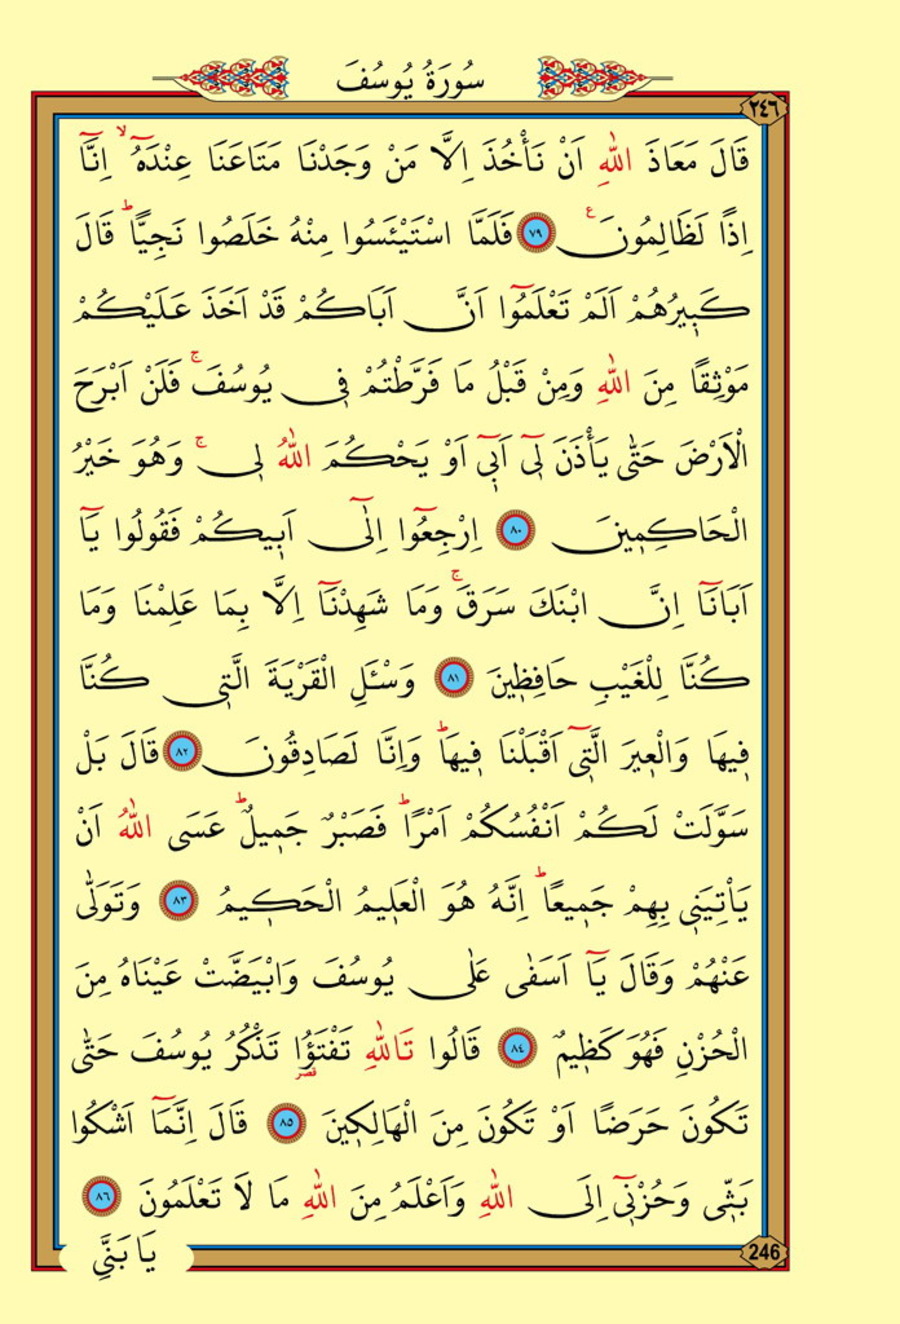 سُورَةُ يُوسُفَ
٢٤٦
قَالَ مَعَاذَ اللّٰهِ اَنْ نَأْخُذَ اِلَّا مَنْ وَجَدْنَا مَتَاعَنَا عِنْدَهُٓ ۙ اِنَّٓا
اِذًا لَظَالِمُونَ ع ٧٩ فَلَمَّا اسْتَيْئَسُوا مِنْهُ خَلَصُوا نَجِيًّا ۜ قَالَ
كَبِيرُهُمْ اَلَمْ تَعْلَمُٓوا اَنَّ اَبَاكُمْ قَدْ اَخَذَ عَلَيْكُمْ
مَوْثِقًا مِنَ اللّٰهِ وَمِنْ قَبْلُ مَا فَرَّطْتُمْ فٖي يُوسُفَ ۚ فَلَنْ اَبْرَحَ
الْاَرْضَ حَتّٰى يَأْذَنَ لٖٓي اَبٖٓي اَوْ يَحْكُمَ اللّٰهُ لٖي ۚ وَهُوَ خَيْرُ
الْحَاكِمٖينَ ٨٠ اِرْجِعُٓوا اِلٰٓى اَبٖيكُمْ فَقُولُوا يَٓا
اَبَانَٓا اِنَّ ابْنَكَ سَرَقَ ۚ وَمَا شَهِدْنَٓا اِلَّا بِمَا عَلِمْنَا وَمَا
كُنَّا لِلْغَيْبِ حَافِظٖينَ ٨١ وَسْـَٔلِ الْقَرْيَةَ الَّتٖي كُنَّا
فٖيهَا وَالْعٖيرَ الَّتٖٓي اَقْبَلْنَا فٖيهَا ۜ وَاِنَّا لَصَادِقُونَ ٨٢ قَالَ بَلْ
سَوَّلَتْ لَكُمْ اَنْفُسُكُمْ اَمْرًا ۜ فَصَبْرٌ جَمٖيلٌ ۜ عَسَى اللّٰهُ اَنْ
يَأْتِيَنٖي بِهِمْ جَمٖيعًا ۜ اِنَّهُ هُوَ الْعَلٖيمُ الْحَكٖيمُ ٨٣ وَتَوَلّٰى
عَنْهُمْ وَقَالَ يَٓا اَسَفٰى عَلٰى يُوسُفَ وَابْيَضَّتْ عَيْنَاهُ مِنَ
الْحُزْنِ فَهُوَ كَظٖيمٌ ٨٤ قَالُوا تَاللّٰهِ تَفْتَؤُا تَذْكُرُ يُوسُفَ حَتّٰى
قصر
تَكُونَ حَرَضًا اَوْ تَكُونَ مِنَ الْهَالِكٖينَ ٨٥ قَالَ اِنَّمَٓا اَشْكُوا
بَثّٖي وَحُزْنٖٓي اِلَى اللّٰهِ وَاَعْلَمُ مِنَ اللّٰهِ مَا لَا تَعْلَمُونَ ٨٦
يَا بَنِيَّ
246